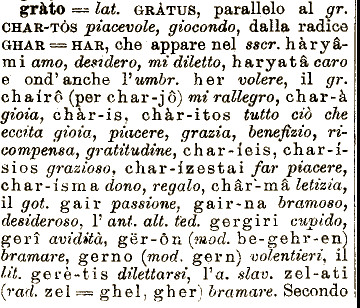 gràto = lat. GRÀTUS, parallelo al gr.
CHAR-TÒS piacevole, giocondo, dalla radice
GHAR = HAR, che appare nel sscr. hàryâ-
mi amo, desidero, mi diletto, haryatâ caro
e ond'anche l'umbr. her volere, il gr.
chaírô (per char-jô) mi rallegro, char-à
gioia, chàr-is, chàr-itos tutto ciò che
eccita gioia, piacere, grazia, benefizio, ri-
compensa, gratitudine, char-íeis, char-í-
sios grazioso, char-ízestai far piacere,
char-ísma dono, regalo, châr-mâ letizia,
il got. gair passione, gair-na bramoso,
desideroso, l'ant. alt. ted. gergiri cupido,
gerî avidità, gër-ôn (mod. be-gehr-en)
bramare, gerno (mod. gern) volentieri, il
lit. gerè-tis dilettarsi, l'a. slav. zel-ati
(rad. zel = ghel, gher) bramare. Secondo